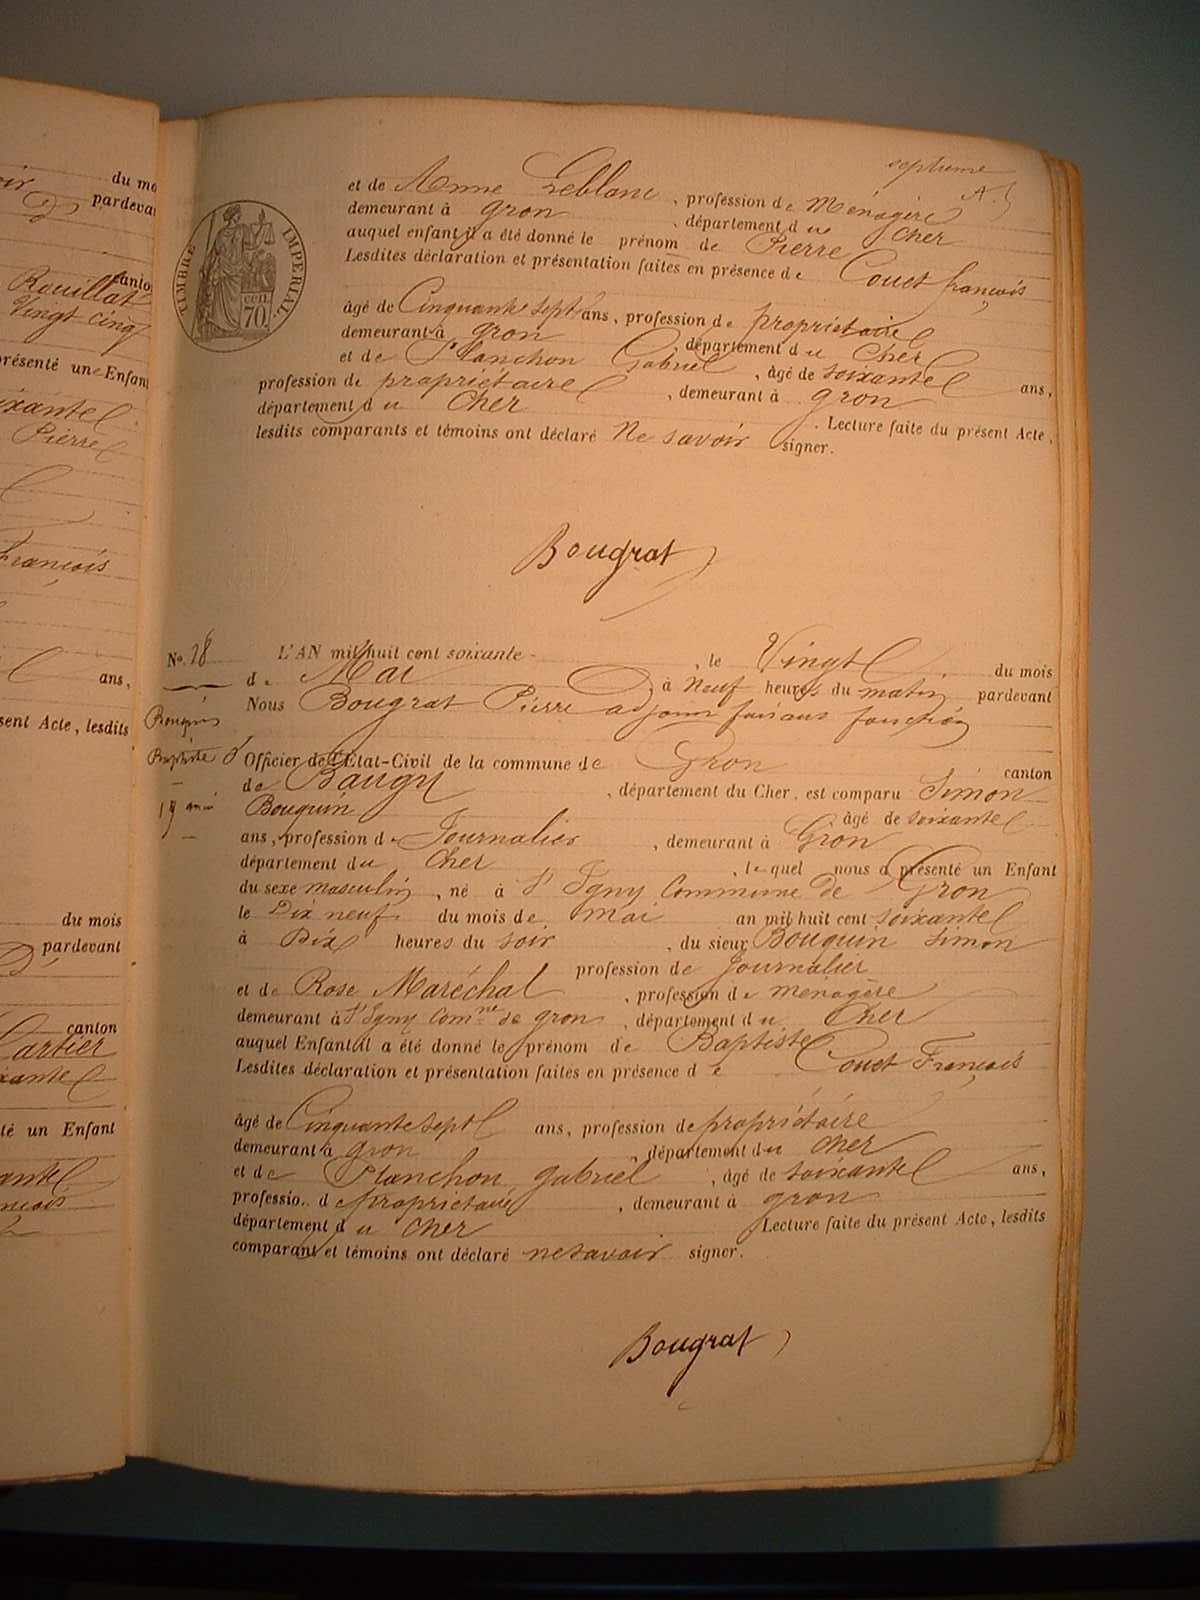 septième
et de Anne Leblanc, profession de Ménagère
demeurant à gron, département du Cher
auquel enfant il a été donné le prénom de Pierre
Lesdites déclaration et présentation faites en présence de Couet françois
âgé de Cinquante sept ans, profession de propriétaire
demeurant à gron, département du Cher
et de Planchon Gabriel, âgé de soixante ans,
profession de propriétaire, demeurant à gron
département du Cher. Lecture faite du présent Acte,
lesdits comparants et témoins ont déclaré Ne savoir signer.
TIMBRE IMPERIAL
70 cen.
Bougrat
No. 28 L'AN mil huit cent soixante, le Vingt du mois
de Mai à Neuf heures du matin pardevant
Nous Bougrat Pierre adjoint faisant fonction
Officier de l'État-Civil de la commune de Gron canton
de Baugy, département du Cher, est comparu Simon
Bouquin âgé de soixante
ans, profession de Journalier, demeurant à Gron
département du Cher, lequel nous a présenté un Enfant
du sexe masculin, né à St Igny Commune de Gron
le Dix neuf du mois de mai an mil huit cent soixante
à Dix heures du soir, du sieur Bouquin Simon
profession de Journalier
et de Rose Maréchal, profession de ménagère
demeurant à St Igny Comne de gron, département du Cher
auquel Enfant il a été donné le prénom de Baptiste
Lesdites déclaration et présentation faites en présence de Couet François
âgé de Cinquante sept ans, profession de propriétaire
demeurant à gron, département du Cher
et de Planchon gabriel, âgé de soixante ans,
profession de propriétaire, demeurant à gron
département du Cher Lecture faite du présent Acte, lesdits
comparant et témoins ont déclaré ne savoir signer.
Bougrat
Bouquin
Baptiste
19 mai
du mo
pardeva
canton
Rouillat
Vingt cinq
présenté un Enfant
ixante
Pierre
François
ans,
sent Acte, lesdits
du mois
pardevant
canton
Cartier
ixante
té un Enfant